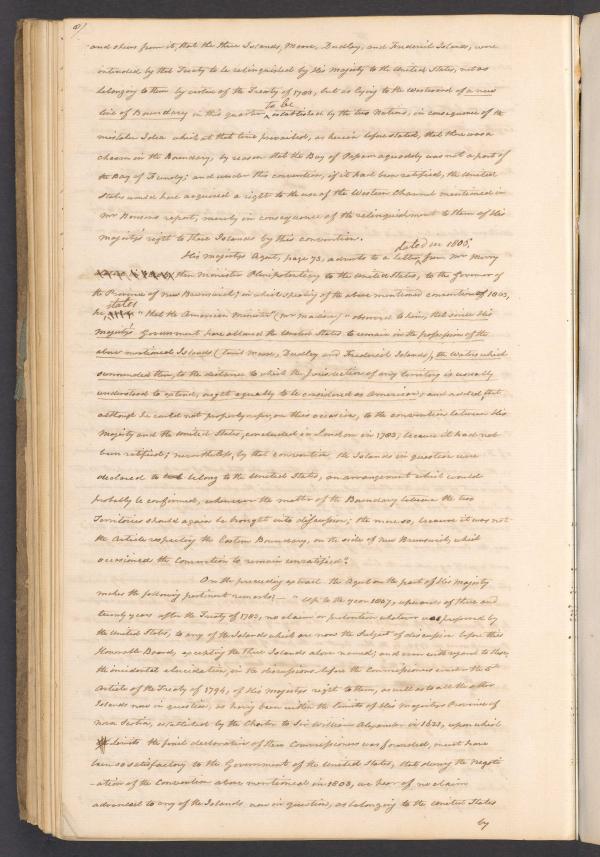 and shews from it, that the three Islands, Moose, Dudley, and Frederick Islands, were
intended by that Treaty to be relinquished by His Majesty to the United States, not as
belonging to them by virtue of the Treaty of 1783, but as lying to the Westward of a new
line of Boundary in this quarter to be established by the two Nations, in consequence of the
mistaken Idea which at that time prevailed, as herein before stated, that there was a
chasm in the Boundary, by reason that the Bay of Passamaquoddy was not a part of
the Bay of Fundy; and under this convention, if it had been ratified, the United
States would have acquired a right to the use of the Western Channel mentioned in
Mr report, merely in consequence of the relinquishment to them of His
Majesty's right to these Islands by this convention.
His Majesty's Agent, page 73, adverts to a letter, dated in 1805, from Mr Merry
then Minister Plenipotentiary to the United States, to the Governor of
the Province of New Brunswick; in which speaking of the above mentioned convention of 1803,
he states "that the American Minister (Mr Madison) observed to him, that since His
Majesty's Government have allowed the United States to remain in the possession of the
above mentioned Islands (Moose, Dudley and Frederick Islands), the waters which
surrounded them, to the distance to which the jurisdiction of any territory is usually
understood to extend, ought equally to be considered as American; and added, that
although he could not properly refer, on this occasion, to the convention between His
Majesty and the United States, concluded in London in 1803, because it had not
been ratified; nevertheless, by that convention the Islands in question were
declared to belong to the United States, an arrangement which would
probably be confirmed, whenever the matter of the Boundary between the two
Territories should again be brought into discussion; the more so, because it was not
the Article respecting the Eastern Boundary, on the side of New Brunswick, which
occasioned the Convention to remain unratified".
On the preceding extract the Agent on the part of His Majesty
makes the following pertinent remarks: — "Up to the year 1807, upwards of three and
twenty years after the Treaty of 1783, no claim or pretention whatever was preferred by
the United States, to any of the Islands which are now the Subject of discussion before this
Honorable Board, excepting the Three Islands above named; and even with regard to these,
the incidental elucidation, in the discussions before the Commissioners under the 5th
Article of the Treaty of 1794, of His Majesty's right to them, as well as to all the other
Islands now in question, as having been within the limits of His Majesty's Province of
Nova Scotia, established by the Charter to Sir William Alexander in 1621, upon which
limits the final declaration of these Commissioners was founded, must have
been so satisfactory to the Government of the United States, that during the negoti
-ation of the Convention above mentioned in 1803, we hear of no claim
advanced to any of the Islands now in question, as belonging to the United States
by